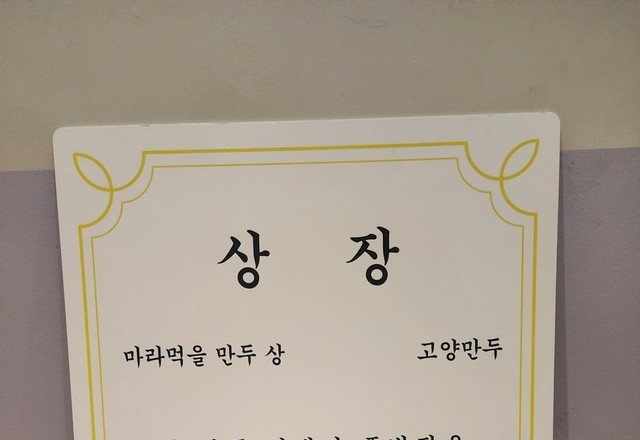 상 장
마라먹을 만두 상 고양만두